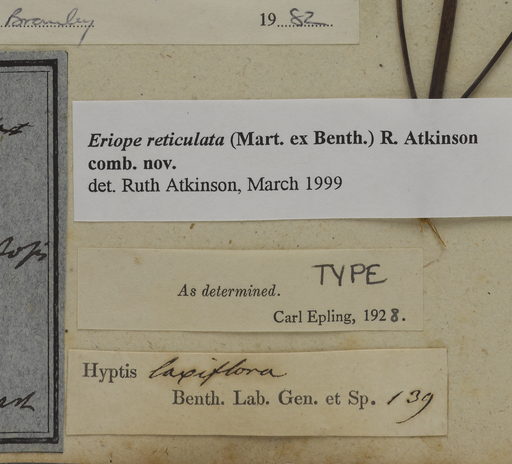 Bramley 19 82
Eriope reticulata (Mart. ex Benth.) R. Atkinson
comb. nov.
det. Ruth Atkinson, March 1999
TYPE
As determined.
Carl Epling, 1928.
Hyptis laxiflora
Benth. Lab. Gen. et Sp. 139